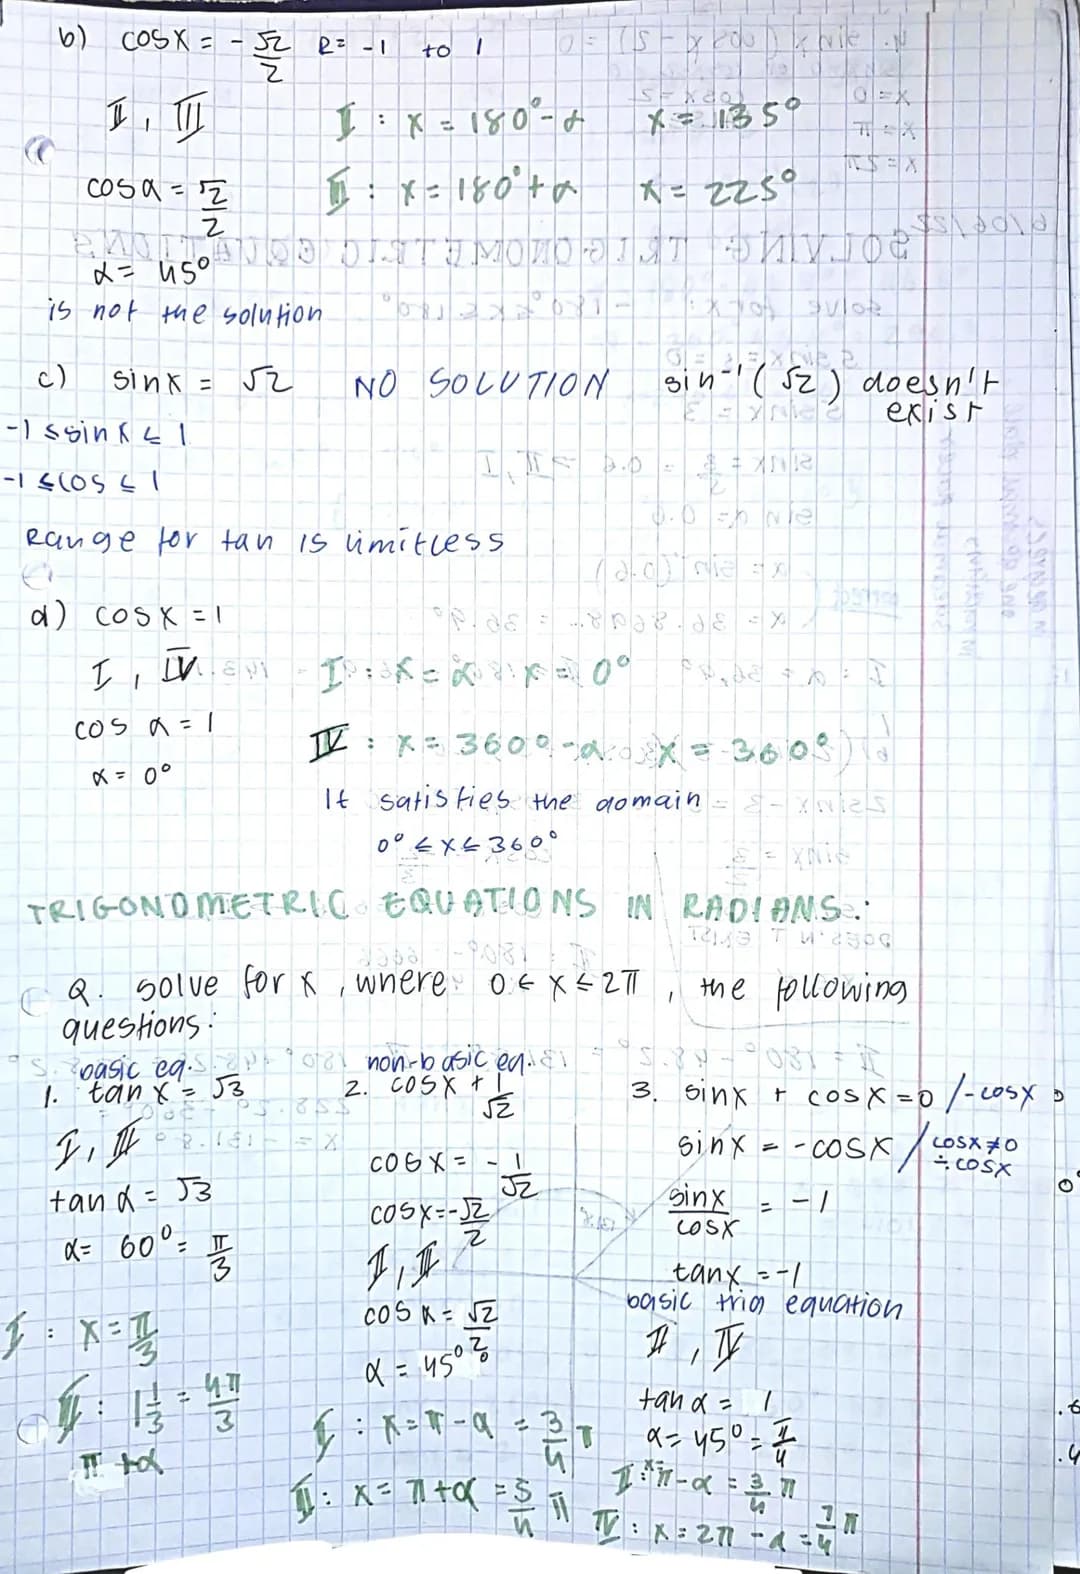 b) cosx = -√2/2 R= -1 to 1
II, III II : x = 180°-α x = 135°
cosα = √2/2 III : x = 180°+α x = 225°
α= 45°
is not the solution
c) sinx = √2 NO SOLUTION sin⁻¹(√2) doesn't exist
-1≤sinx≤1
-1≤cos≤1
Range for tan is limitless
d) cosx=1
I, IV I : x = α x = 0°
cos α=1
IV : x = 360°-α x = 360°
α= 0°
It satisfies the domain
0°≤x≤360°
TRIGONOMETRIC EQUATIONS IN RADIANS:
Q. solve for x, where 0≤x≤2π, the following
questions:
basic eq.
1. tan x = √3
I, III
tan α = √3
α= 60° = π/3
I : x = π/3
III : 1 1/3 = 4π/3
π+α
non-basic eq.
2. cosx + 1/√2
cosx = -1/√2
cosx=-√2/2
II, III
cos α = √2/2
α = 45°
II : x=π-α = 3/4 π
III : x= π+α = 5/4 π
3. sinx + cosx=0 /-cosx
sinx = -cosx / cosx≠0 ÷cosx
sinx/cosx = -1
tanx =-1
basic trig equation
II, IV
tanα = 1
α=45°=π/4
II: x=π-α = 3/4 π
IV : x=2π-α = 7/4 π